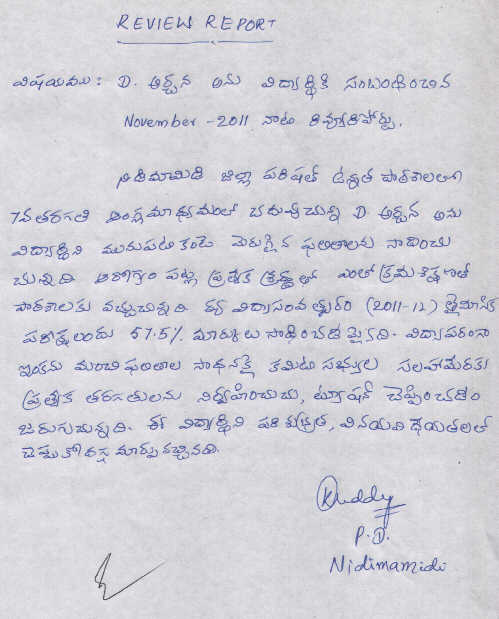 REVIEW REPORT
విషయము: D. అర్చన అను విద్యార్థికి సంబంధించిన
November -2011 నాటి రివ్యూరిపోర్టు.
నిడిమామిడి జిల్లా పరిషత్ ఉన్నత పాఠశాలలో
7వ తరగతి ఆంగ్లమాధ్యమంలో చదువుచున్న D అర్చన అను
విద్యార్థిని మునుపటి కంటే మెరుగైన ఫలితాలను సాదించు
చున్నది ఆరోగ్యం పట్ల ప్రత్యేక శ్రద్ధతో ఎంతో క్రమశిక్షణతో
పాఠశాలకు వచ్చుచున్నది ఈ విద్యాసంవత్సరం (2011-12) త్రైమాసిక
పరీక్షలందు 57.5% మార్కులు సాధించడమైనది. విద్యాపరంగా
ఇంకను మంచి ఫలితాల సాధనకై కమిటీ సభ్యుల సలహామేరకు
ప్రత్యేక తరగతులను నిర్వహించుచు, ట్యూషన్ చెప్పించడం
జరుగుచున్నది. ఈ విద్యార్థిని పరిశుభ్రత, వినయవిధేయతలలో
చెప్పుకోదగ్గ మార్పు వచ్చినది.
P.D.
Nidimamidi